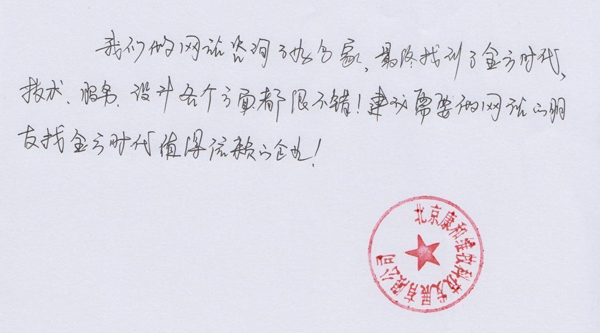 我们做网站咨询了好多家,最终找到了金方时代,
技术、服务、设计各个方面都很不错!建议需要做网站的朋
友找金方时代值得信赖的企业!
北京康和维健科技发展有限公司